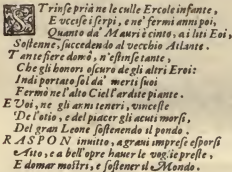 STrinse pria ne le culle Ercole infante,
E vccise i serpi, e ne' fermi anni poi,
Quanto da' Mauri è cinto, a i liti Eoi,
Sostenne, succedendo al vecchio Atlante.
Tante siere domò, n'estinse tante,
Che gli honori oscuro de gli altri Eroi:
Indi portato sol da' merti suoi
Fermò ne l'alto Ciel l'ardite piante.
E Voi, ne gli anni teneri, vinceste
De l'otio, e del piacer gli acuti morsi,
Del gran Leone sostenendo il pondo.
RASPON inuitto, a graui imprese esporsi
Atto, e a bell'opre hauer le voglie preste,
E domar mostri, e sostener il Mondo.